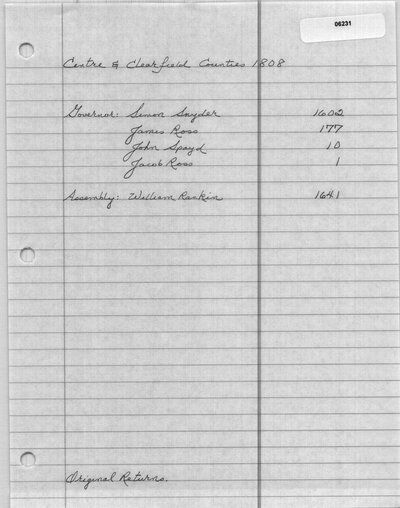 06231
Centre & Clearfield Counties 1808
Governor: Simon Snyder 1602
James Ross 177
John Spayd 10
Jacob Ross 1
Assembly: William Rankin 1641
Original Returns.